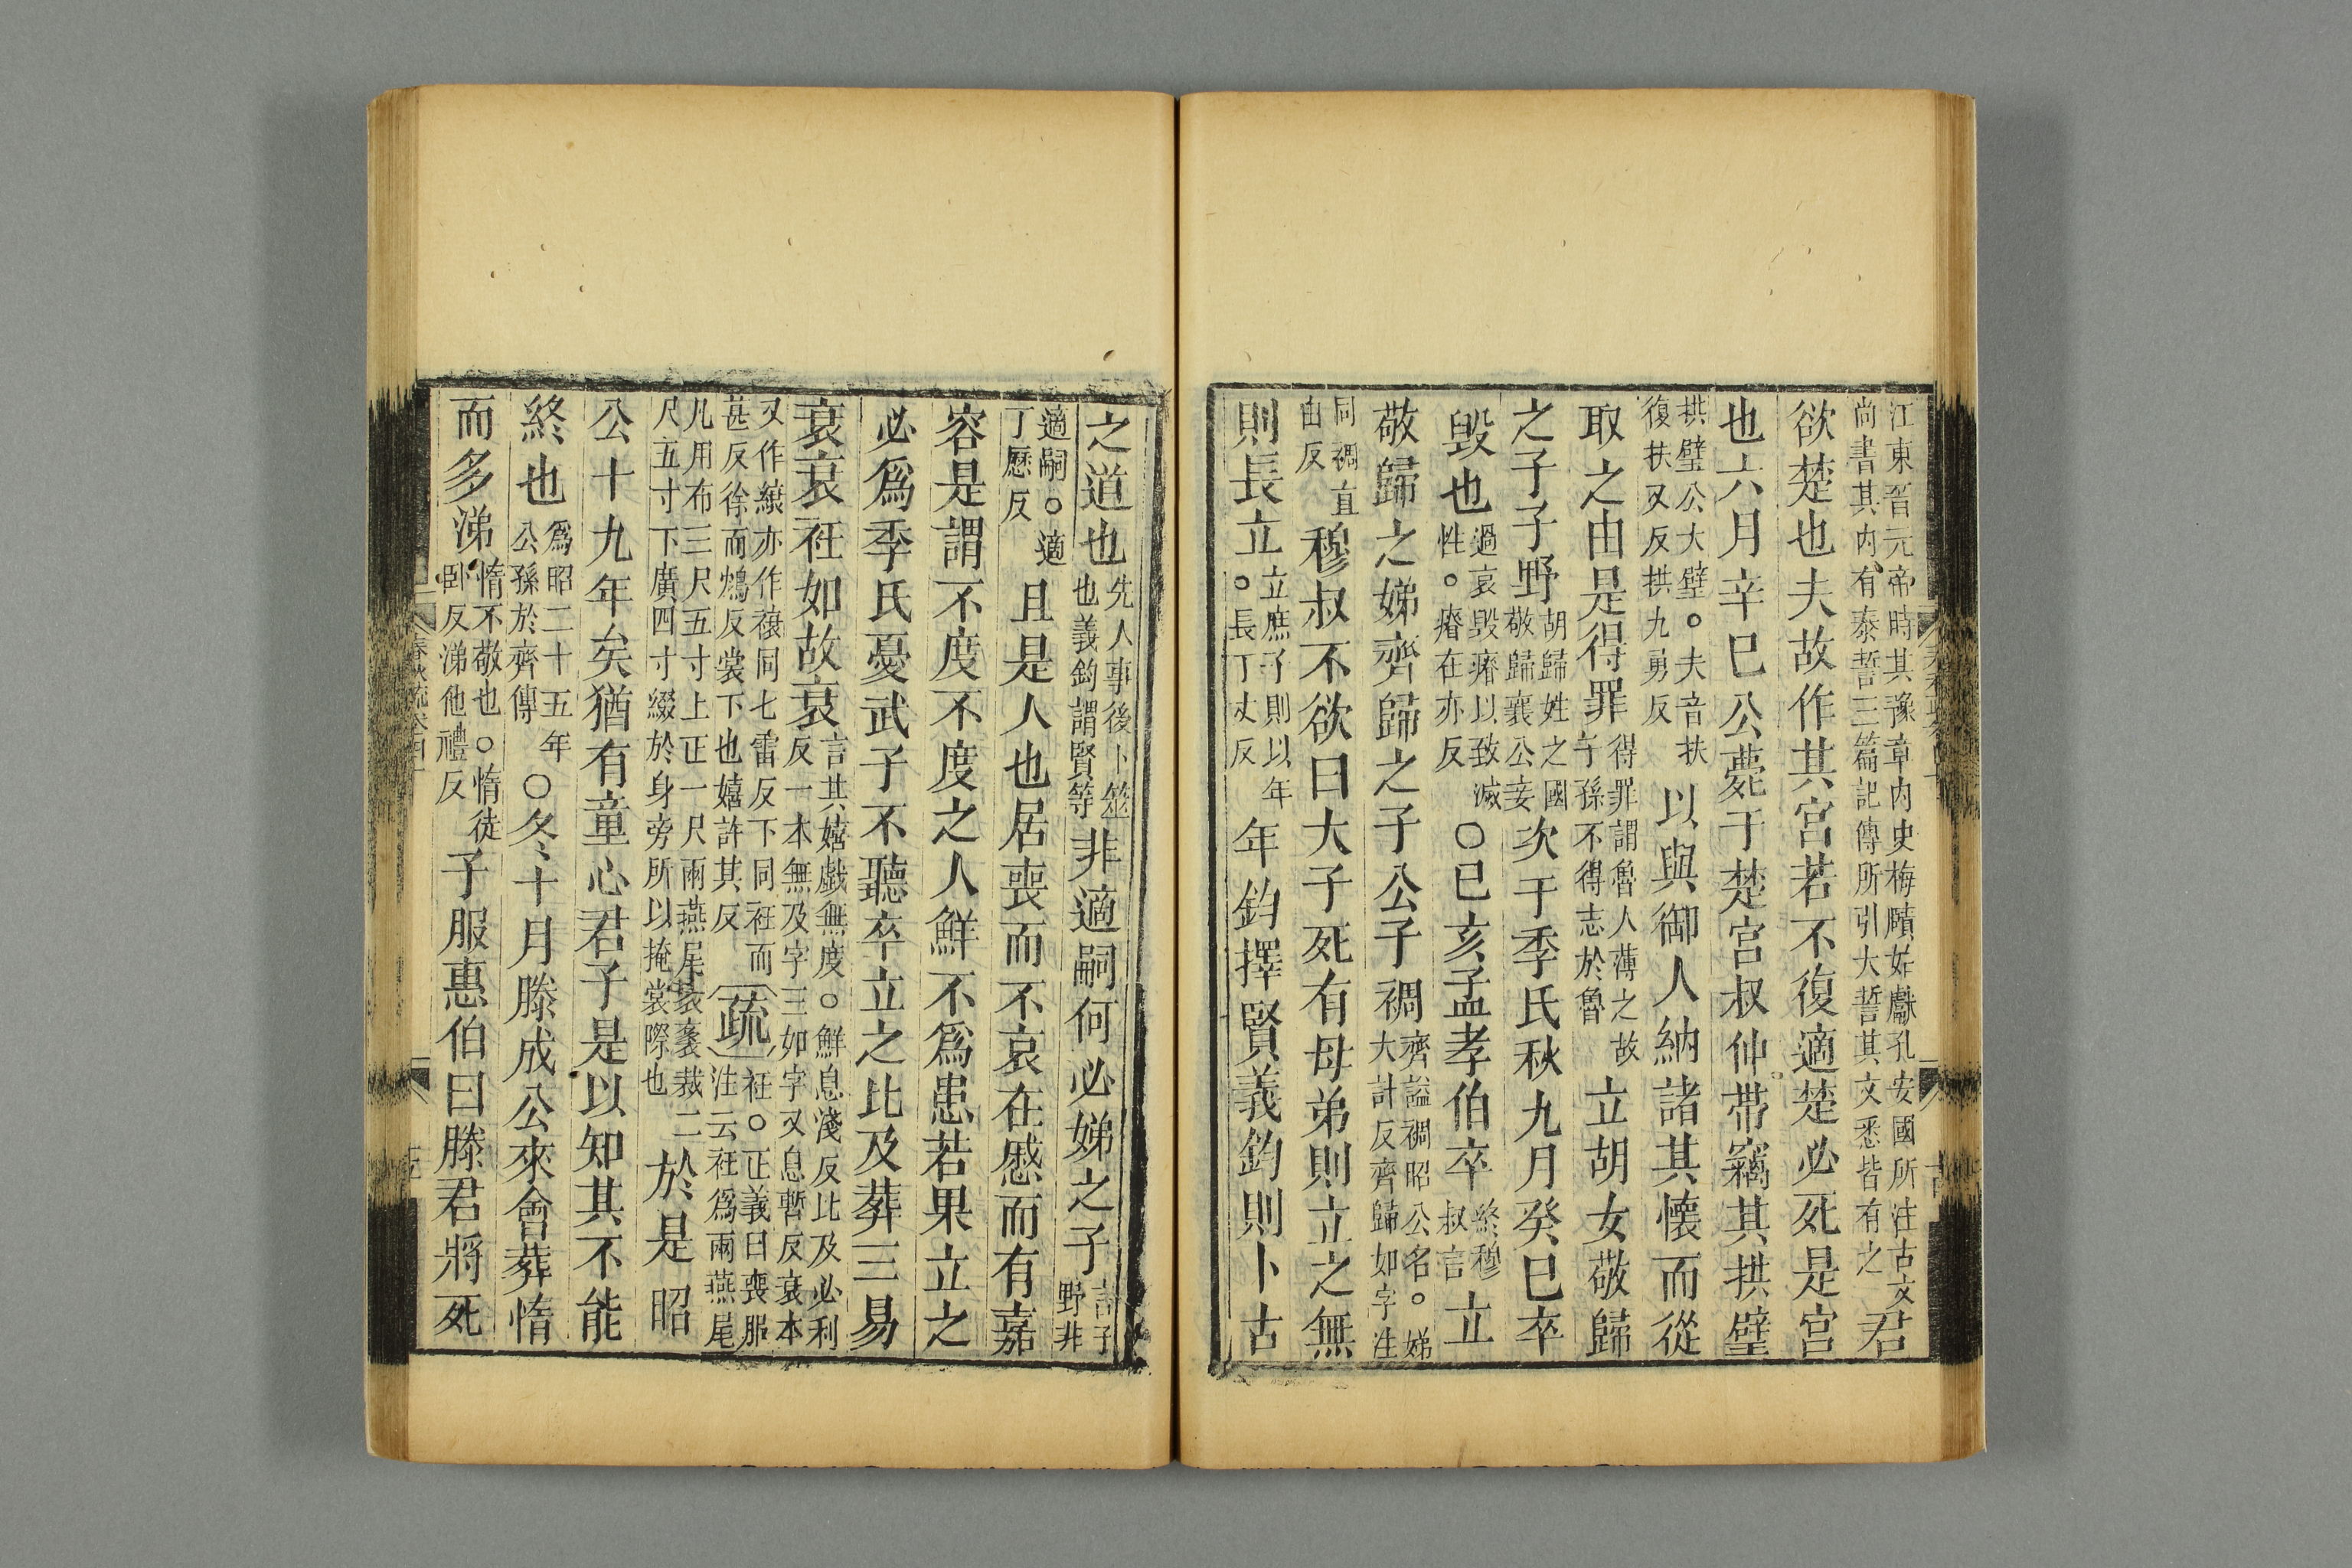 江東晉元帝時其豫章内史梅賾始獻孔安國所注古文
尚書其内有泰誓三篇記傳所引大誓其文悉皆有之
君
欲楚也夫故作其宮若不復適楚必死是宮
也六月辛巳公薨于楚宮叔仲帶竊其拱璧
拱璧公大璧○夫音扶
復扶又反拱九勇反
以與御人納諸其懷而從
取之由是得罪
得罪謂魯人薄之故
子孫不得志於魯
立胡女敬歸
之子子野
胡歸姓之國
敬歸襄公妾
次于季氏秋九月癸巳卒
毀也
過哀毀瘠以致滅
性○瘠在亦反
○己亥孟孝伯卒
終穆
叔言
立
敬歸之娣齊歸之子公子裯
齊謚裯昭公名○娣
大計反齊歸如字注
同裯直
由反
穆叔不欲曰大子死有母弟則立之無
則長立
立庶子則以年
○長丁丈反
年鈞擇賢義鈞則卜古
之道也
先人事後卜筮
也義鈞謂賢等
非適嗣何必娣之子
言子
野非
適嗣○適
丁歷反
且是人也居喪而不哀在慼而有嘉
容是謂不度不度之人鮮不爲患若果立之
必爲季氏憂武子不聽卒立之比及葬三易
衰衰衽如故衰
言其嬉戲無度○鮮息淺反比及必利
反一本無及字三如字又息暫反衰本
又作縗亦作𮖱同七雷反下同衽而
甚反徐而鴆反裳下也嬉許其反
疏
衽○正義曰喪服
注云衽爲兩燕尾
凡用布三尺五寸上正一尺兩燕尾裳袤裁二
尺五寸下廣四寸綴於身旁所以掩裳際也
於是昭
公十九年矣猶有童心君子是以知其不能
終也
爲昭二十五年
公孫於齊傳
○冬十月滕成公來會葬惰
而多涕
惰不敬也○惰徒
卧反涕他禮反
子服惠伯曰滕君將死